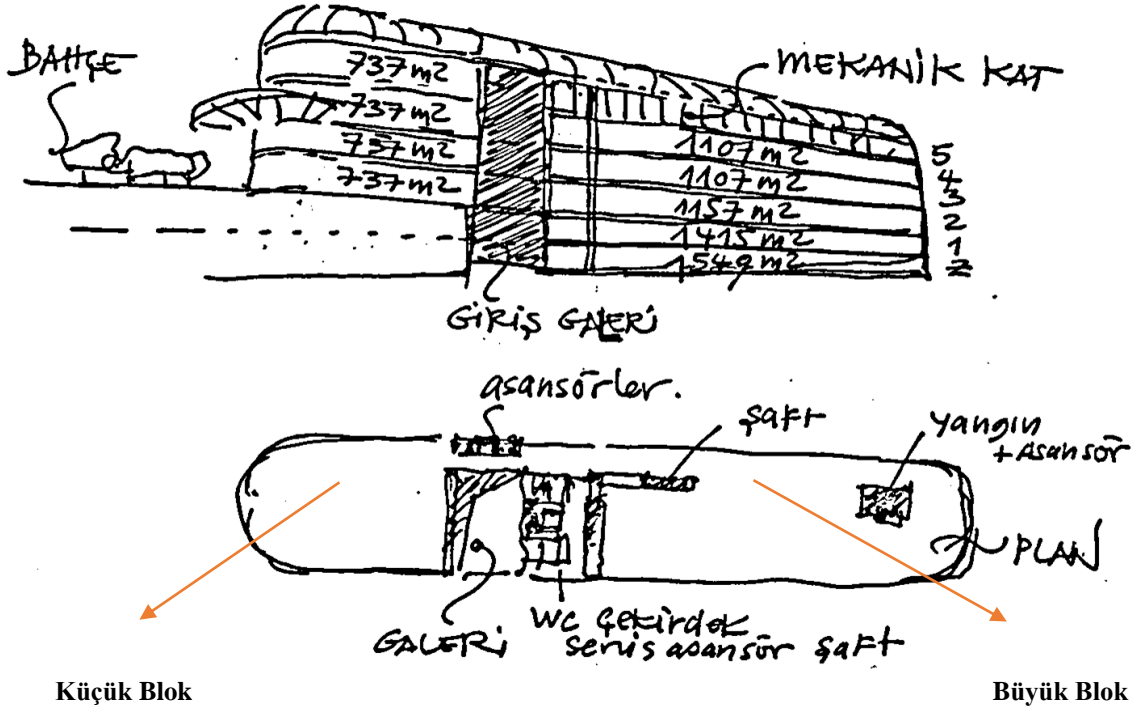 BAHÇE
MEKANİK KAT
737 m2
737 m2
737 m2
737 m2
1107 m2
1107 m2
1157 m2
1415 m2
1549 m2
5
4
3
2
1
Z
GİRİŞ GALERİ
asansörler.
şaft
yangın
+ Asansör
PLAN
GALERİ
WC çekirdek
servis asansör şaft
Küçük Blok
Büyük Blok